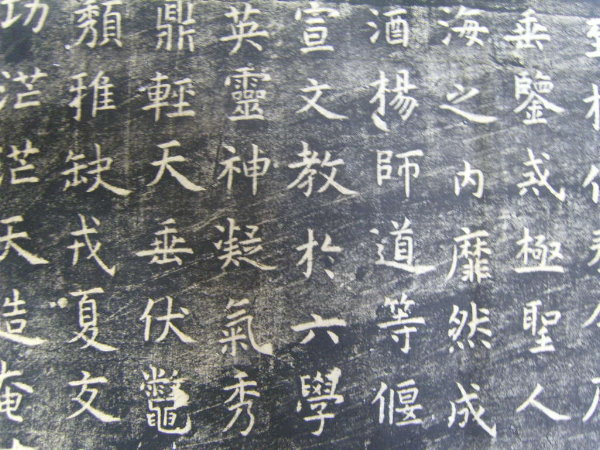 垂鑒戒極聖人
海之内靡然成
酒楊師道等偃
宣文教於六學
英靈神凝氣秀
鼎輕天垂伏鼈
頽雅缺戎夏交
功茫茫天造